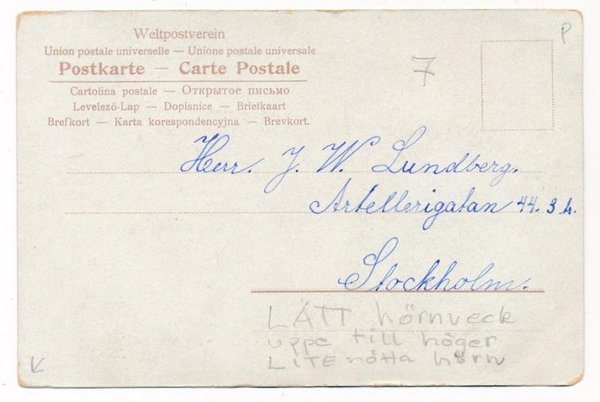 Weltpostverein
Union postale universelle — Unione postale universale
Postkarte — Carte Postale
Cartolina postale — Открытое письмо
Levelező-Lap — Dopisnice — Briefkaart
Brefkort — Karta korespondencyjna — Brevkort.
P
7
Herr. J. W. Lundberg.
Artellerigatan 44. 3. h.
Stockholm.
LÄTT hörnveck
uppe till höger
LITE nötta hörn
V